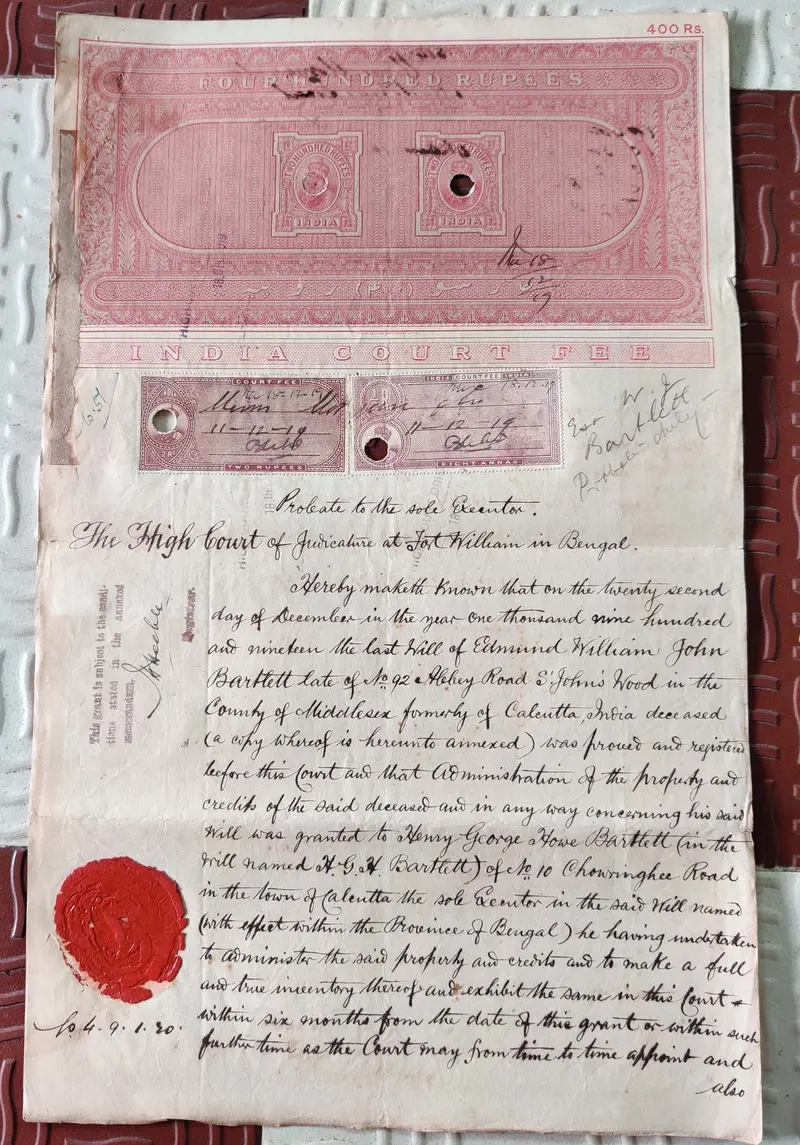 400 Rs.
FOUR HUNDRED RUPEES
TWO HUNDRED RUPEES
INDIA
TWO HUNDRED RUPEES
INDIA
18
12
19
INDIA COURT FEE
COURT FEE
18-12-19
11-12-19
2 RS
TWO RUPEES
INDIA COURT FEE INDIA
18-12-19
11-12-19
EIGHT ANNAS
W. J.
Bartlett
Probate to the sole Executor.
The High Court of Judicature at Fort William in Bengal.
Hereby maketh known that on the twenty second
day of December in the year one thousand nine hundred
and nineteen the last Will of Edmund William John
Bartlett late of No 92 Abbey Road St John's Wood in the
County of Middlesex formerly of Calcutta, India deceased
(a copy whereof is hereunto annexed) was proved and registered
before this Court and that Administration of the property and
credits of the said deceased and in any way concerning his said
Will was granted to Henry George Howe Bartlett (in the
Will named H. G. H. Bartlett) of No 10 Chowringhee Road
in the town of Calcutta the sole Executor in the said Will named
(with effect within the Province of Bengal) he having undertaken
to administer the said property and credits and to make a full
and true inventory thereof and exhibit the same in this Court
within six months from the date of this grant or within such
further time as the Court may from time to time appoint and
also
This grant is subject to the condi-
tions stated in the annexed
memorandum.
Registrar.
4. 9. 1. 20.